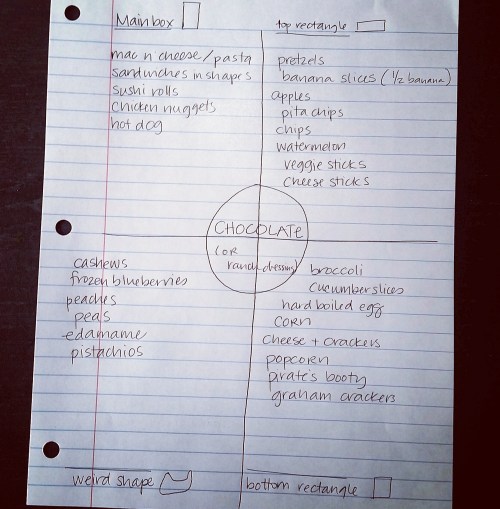 Main box
mac n cheese/pasta
sandwiches n shapes
sushi rolls
chicken nuggets
hot dog
top rectangle
pretzels
banana slices (1/2 banana)
apples
pita chips
chips
watermelon
veggie sticks
cheese sticks
CHOCOLATE
(OR
ranch dressing)
cashews
frozen blueberries
peaches
peas
edamame
pistachios
weird shape
broccoli
cucumber slices
hard boiled egg
corn
cheese + crackers
popcorn
pirate's booty
graham crackers
bottom rectangle